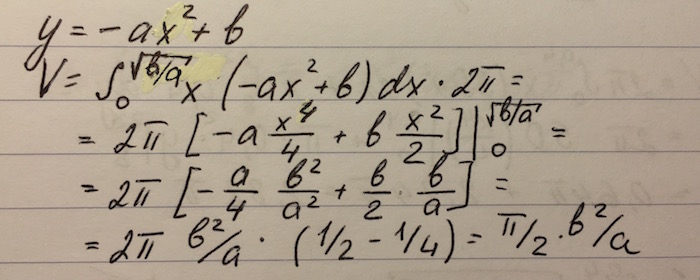 y = -ax² + b
V = ∫₀^√(b/a) x (-ax² + b) dx · 2π =
= 2π [-a x⁴/4 + b x²/2] |₀^√(b/a) =
= 2π [-a/4 b²/a² + b/2 · b/a] =
= 2π b²/a · (1/2 - 1/4) = π/2 · b²/a